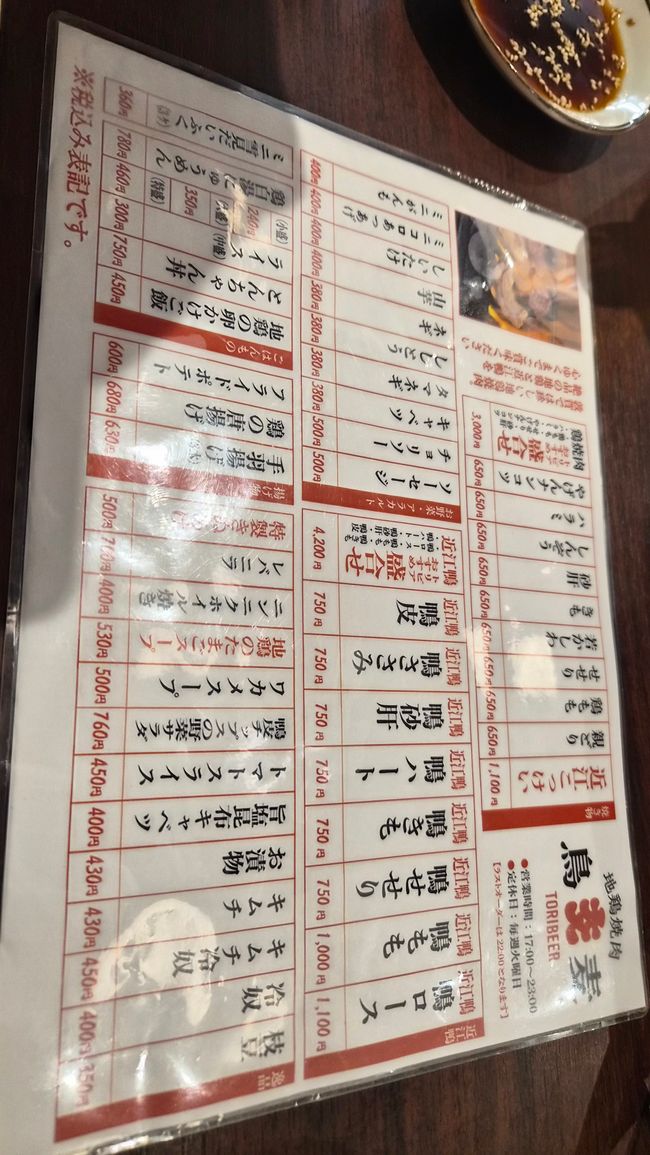 地鶏焼肉
鳥 麦
TORIBEER
●営業時間：17:00〜23:00
●定休日：毎週火曜日
【ラストオーダーは22:00となります】
焼き物
近江こっけい 1,100円
親どり 650円
鶏もも 650円
せせり 650円
若かしわ 650円
きも 650円
砂肝 650円
しんぞう 650円
ハラミ 650円
やげんナンコツ 650円
鶏焼肉 トリビアおすすめ 盛合せ 3,000円
当店では珍しい地鶏焼肉。
絶品の地鶏と近江鴨を
心ゆくまでご賞味ください
近江鴨
近江鴨 鴨ロース 1,100円
近江鴨 鴨もも 1,000円
近江鴨 鴨せせり 750円
近江鴨 鴨きも 750円
近江鴨 鴨ハート 750円
近江鴨 鴨砂肝 750円
近江鴨 鴨ささみ 750円
近江鴨 鴨皮 750円
近江鴨 トリビアおすすめ 盛合せ 4,200円
お野菜・アラカルト
ソーセージ 500円
チョリソー 500円
キャベツ 380円
タマネギ 380円
ししとう 380円
ネギ 380円
山芋 400円
しいたけ 400円
ミニコロあつあげ 400円
ミニがんも 400円
逸品
枝豆 350円
冷奴 400円
キムチ冷奴 450円
キムチ 430円
お漬物 430円
旨塩昆布キャベツ 400円
トマトスライス 450円
鴨皮チップスの野菜サラダ 760円
ワカメスープ 500円
地鶏のたまごスープ 530円
ニンニクホイル焼き 400円
レバニラ 700円
特製 500円
揚げ物
手羽揚げ 680円
鶏の唐揚げ 680円
フライドポテト 600円
ごはんもの
地鶏の卵かけご飯 450円
とんちゃん丼 750円
ライス (中盛) 300円
(小盛) 240円
(大盛) 350円
(特盛) 460円
鶏白湯にゅうめん 780円
ミニ雪見だいふく 360円
※税込み表記です。